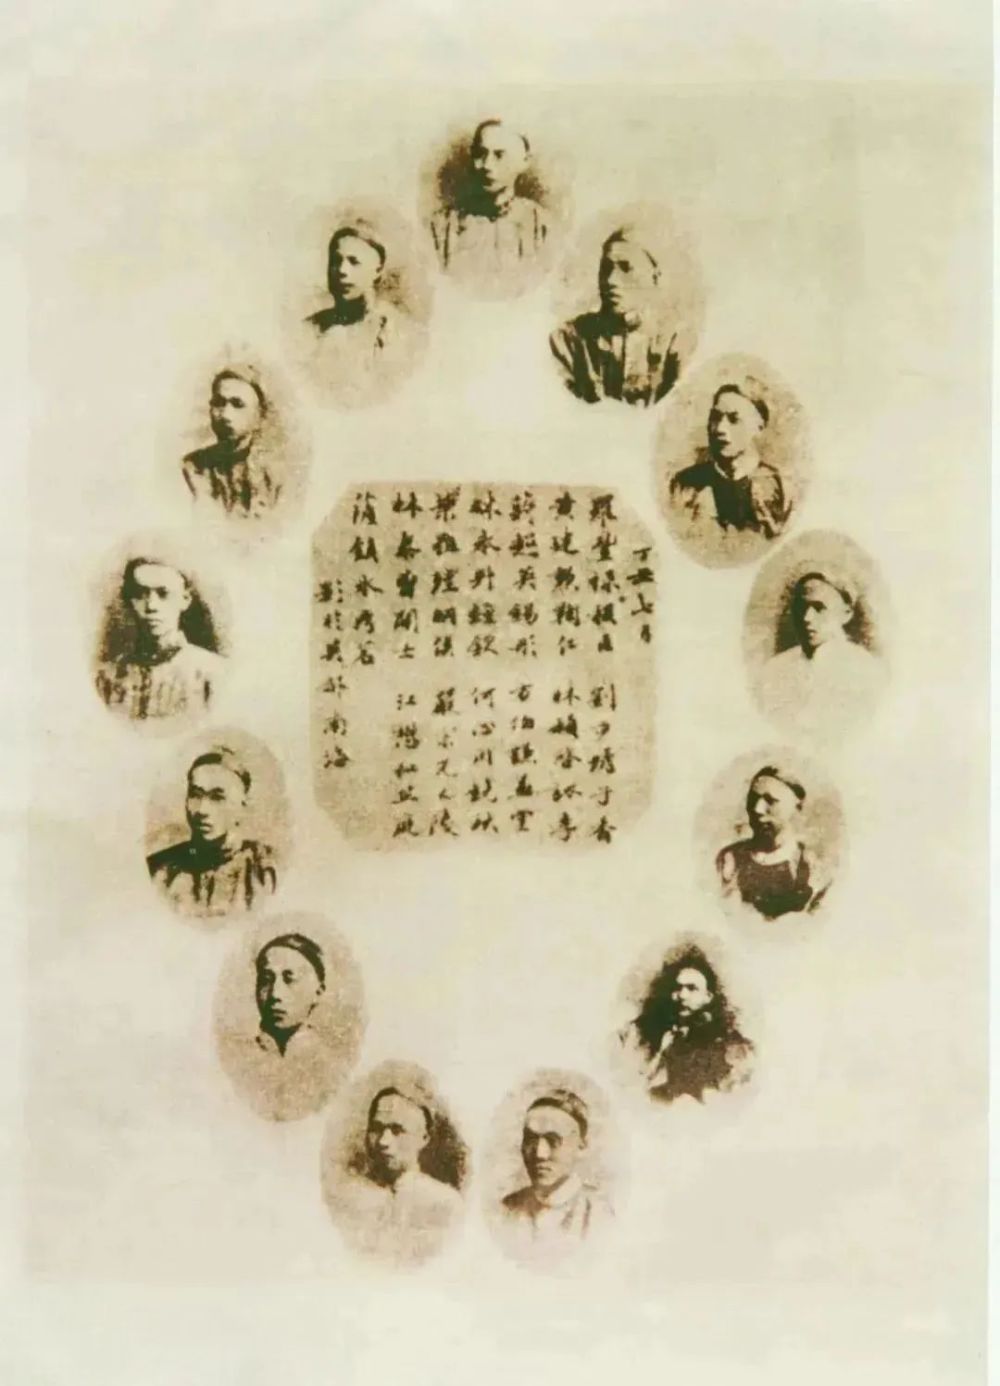 丁丑七月
羅豐祿稷臣 劉步蟾子香
黄建勲鞠仁 林穎啓季
蔣超英錫彤 方伯謙益堂
林永升鍾欽 何心川鏡秋
葉祖珪桐侯 嚴宗光又陵
林泰曾闓士 江懋祉
薩鎮冰茗
影於英 南海